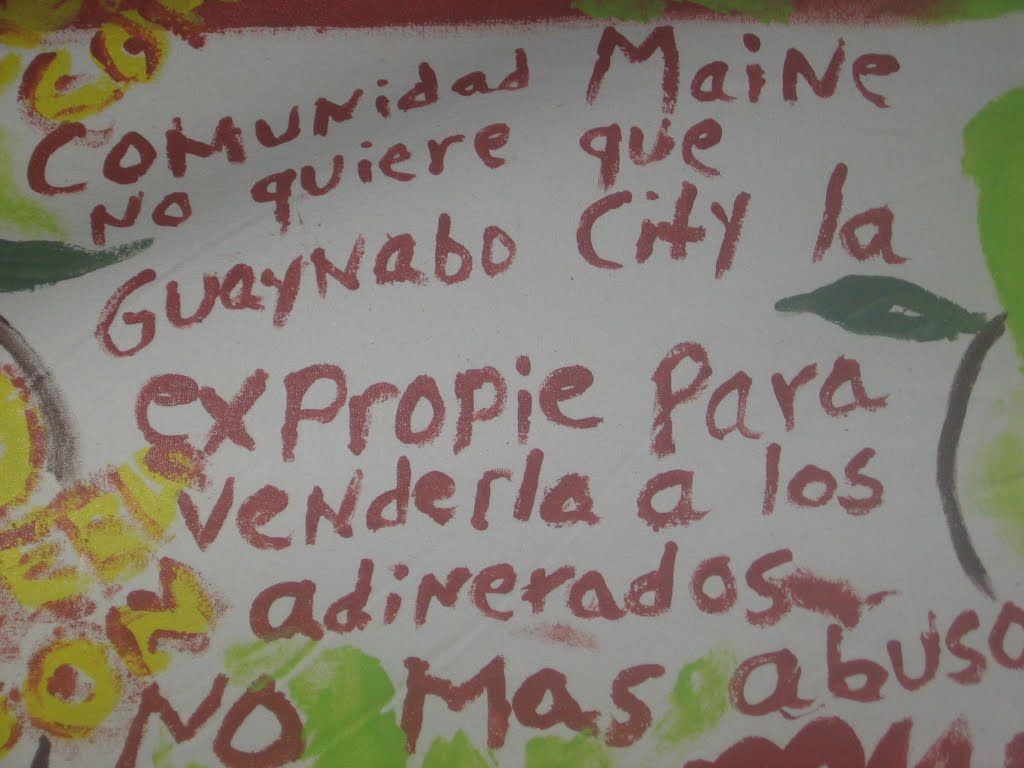 Comunidad Maine
no quiere que
Guaynabo City la
expropie para
venderla a los
adinerados
No mas abuso
CON